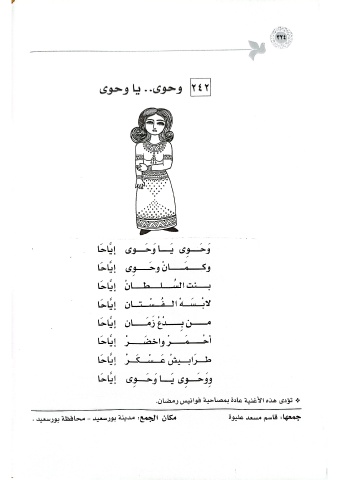 ٣٣٤
٢٤٢ وحوى.. يا وحوى
وَحَوِى يَا وَحَوِى إيَّاحَا
وكَمَانْ وحَوِى إيَّاحَا
بِنت السُلطَانْ إيَّاحَا
لابْسَهْ الفُسْتَان إيَّاحَا
مِن بِدْعْ زَمَان إيَّاحَا
أحْمَرْ واخضَرْ إيَّاحَا
طرَابِيشْ عَسْكَرْ إيَّاحَا
ووَحَوِى يَا وَحَوِى إيَّاحَا
* تؤدى هذه الأغنية عادة بمصاحبة فوانيس رمضان.
جمعها: قاسم مسعد عليوة مكان الجمع: مدينة بورسعيد - محافظة بورسعيد.